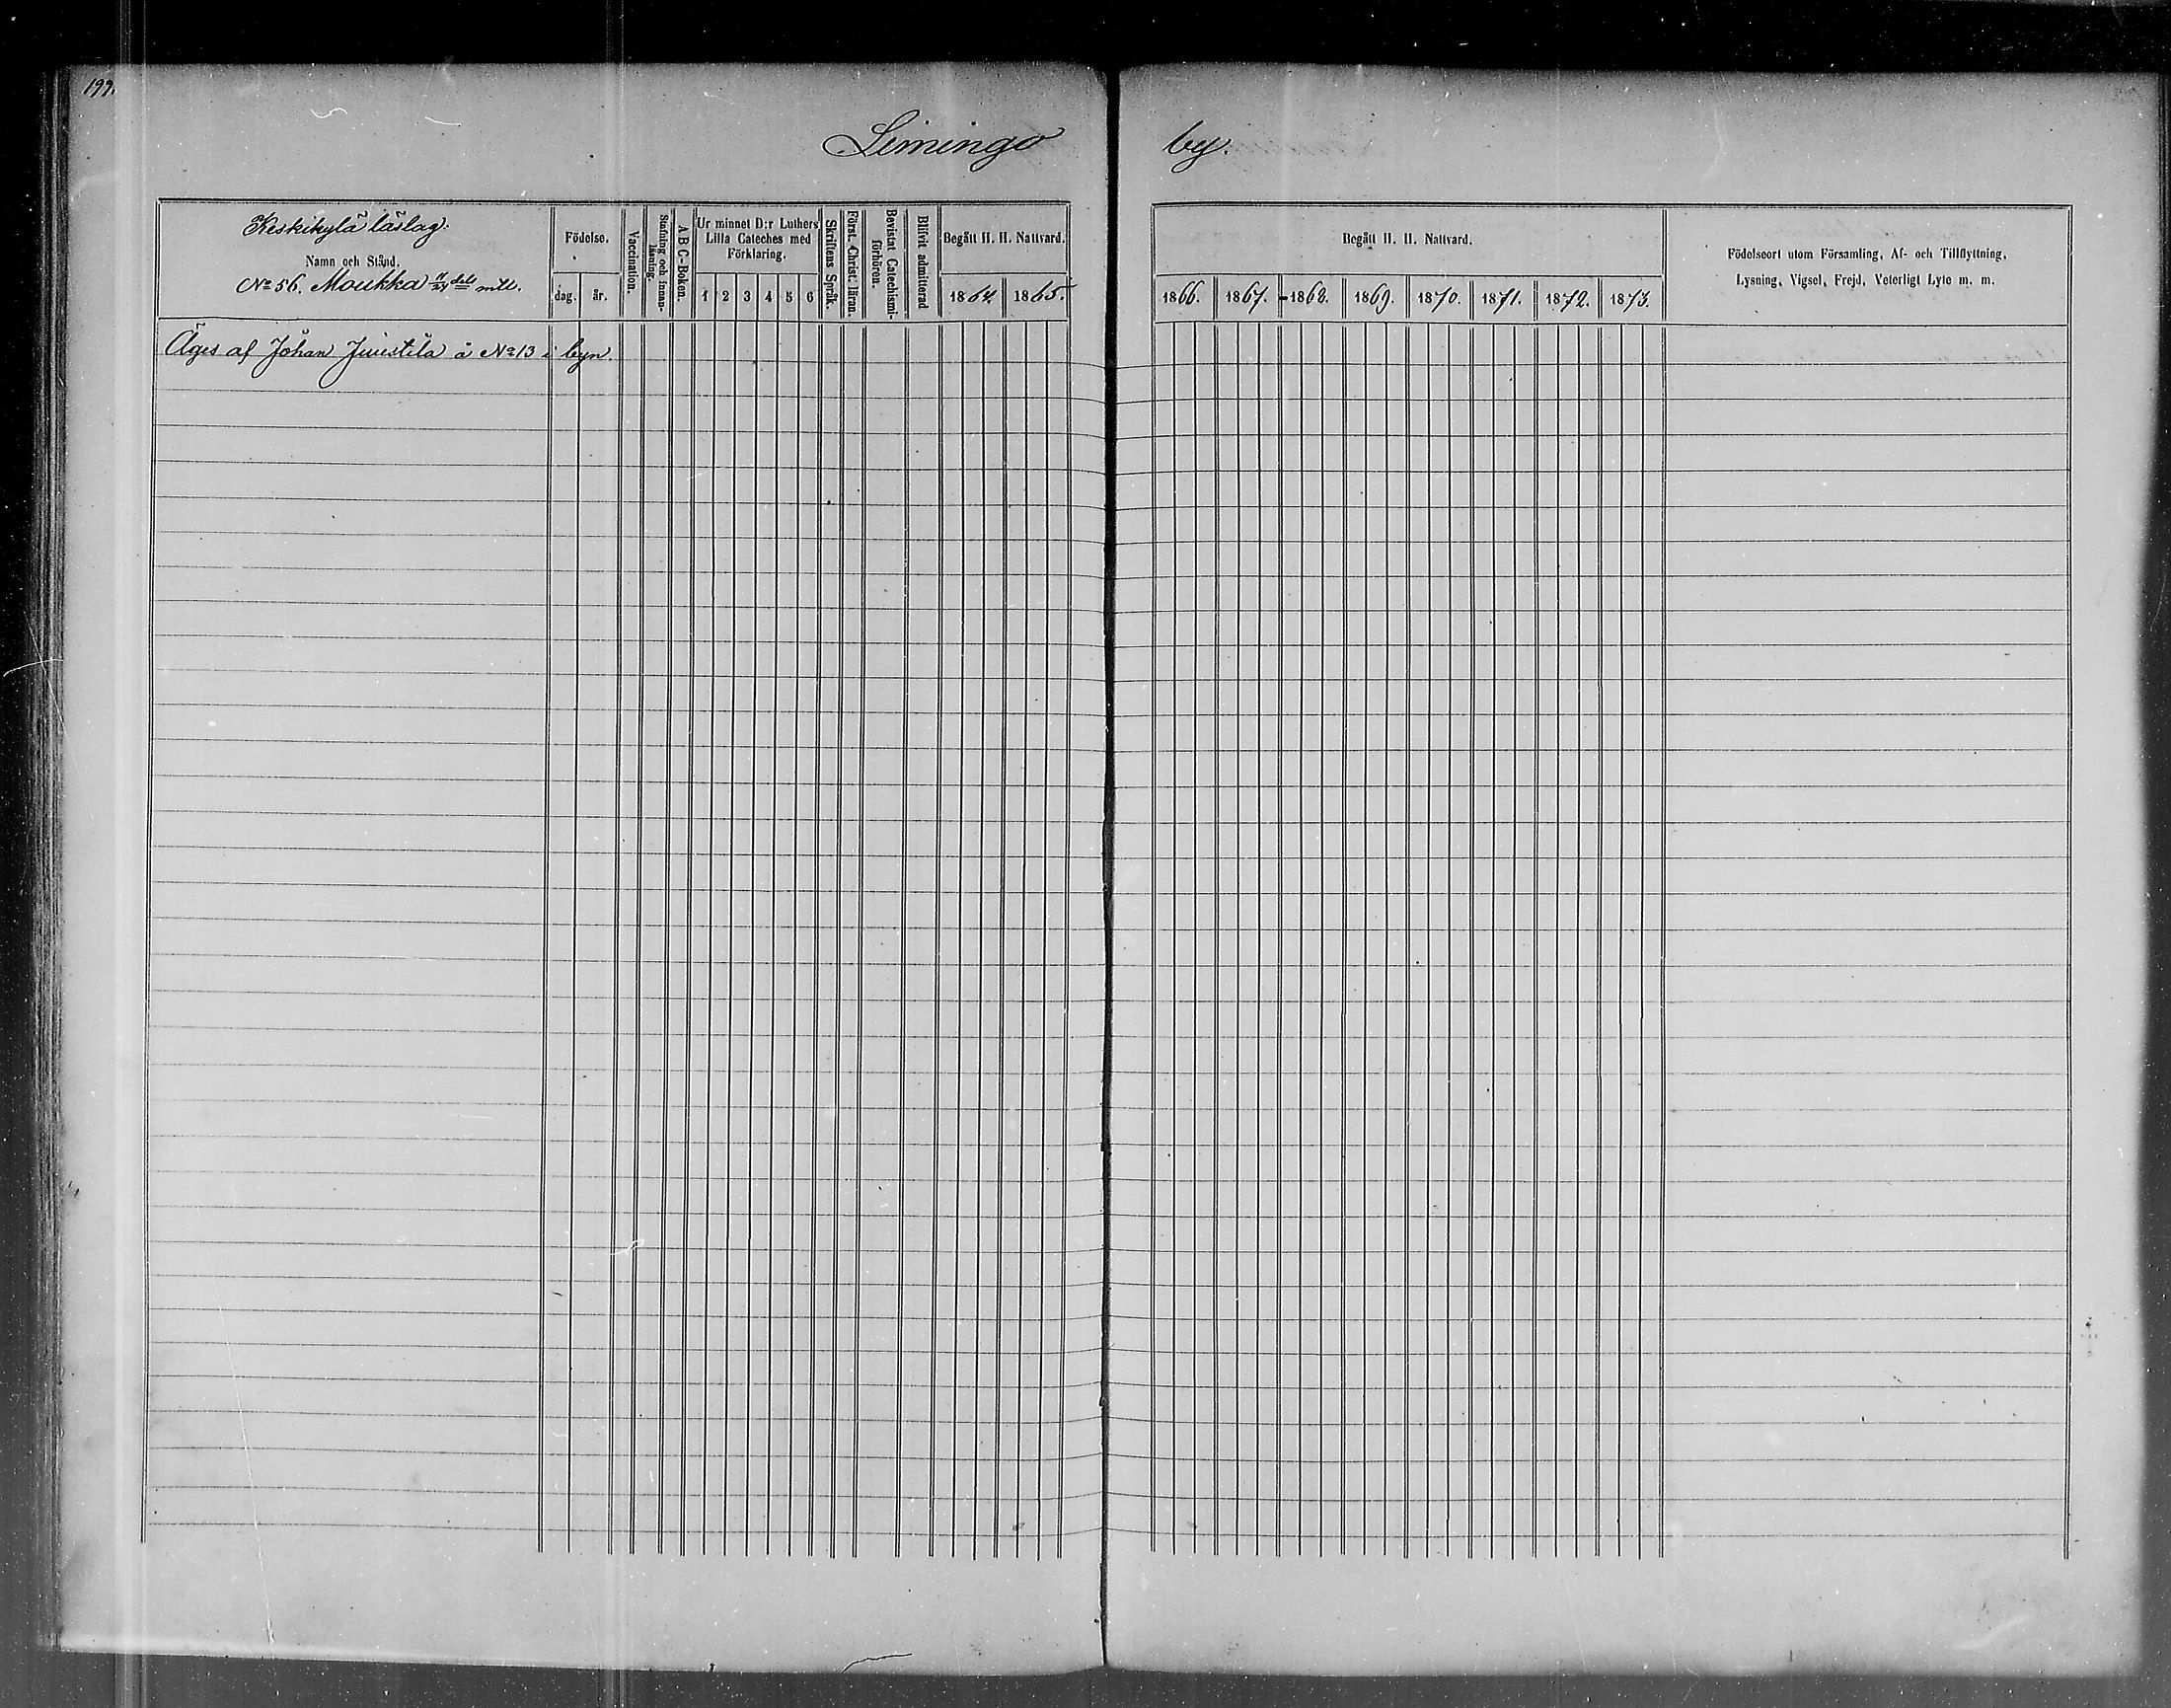 199.
Limingo by.
Keskikylä läslag.
Namn och Stånd.
No 56. Moukka dels mtl.
Födelse.
dag. år.
Vaccination.
Stafning och innanläsning.
A B C-Boken.
Ur minnet D:r Luthers
Lilla Cateches med
Förklaring.
1 2 3 4 5 6
Skriftens Språk.
Först. Christ. läran.
Bevistat Catechismi-
förhören.
Blifvit admitterad
Begått H. H. Nattvard.
1864. 1865.
Begått H. H. Nattvard.
1866. 1867. 1868. 1869. 1870. 1871. 1872. 1873.
Födelseort utom Församling, Af- och Tillflyttning,
Lysning, Vigsel, Frejd, Veterligt Lyte m. m.
Äges af Johan Juustila å No 13 i byn.